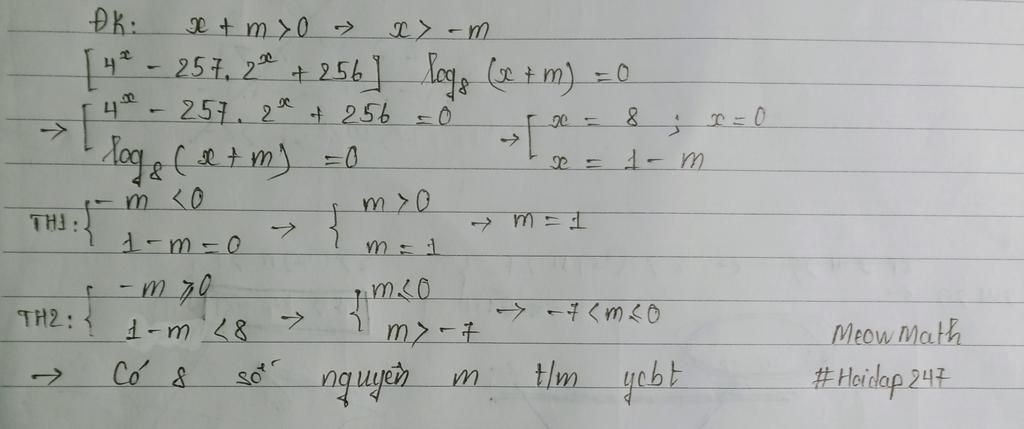 ĐK: x + m > 0 → x > -m
[4^x - 257. 2^x + 256] log_8 (x + m) = 0
→ [ 4^x - 257. 2^x + 256 = 0 → [ x = 8 ; x = 0
log_8 (x + m) = 0 x = 1 - m
TH1: { - m < 0 → { m > 0 → m = 1
1 - m = 0 m = 1
TH2: { - m ⩾ 0 → { m ⩽ 0 → -7 < m ⩽ 0
1 - m < 8 m > -7
MeowMath
→ Có 8 số nguyên m t/m ycbt #Hoidap247